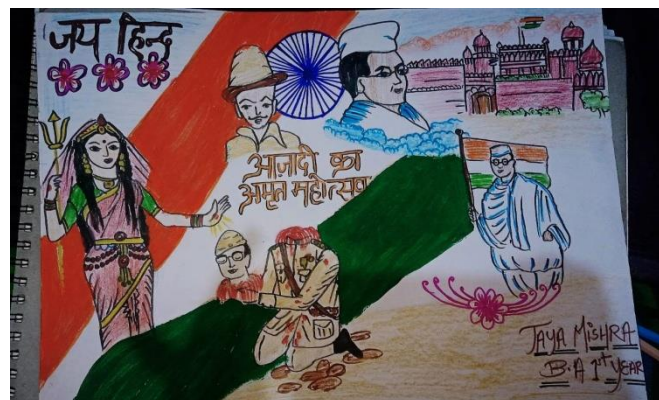 जय हिन्द
आज़ादी का
अमृत महोत्सव
JAYA MISHRA
B.A 1st YEAR